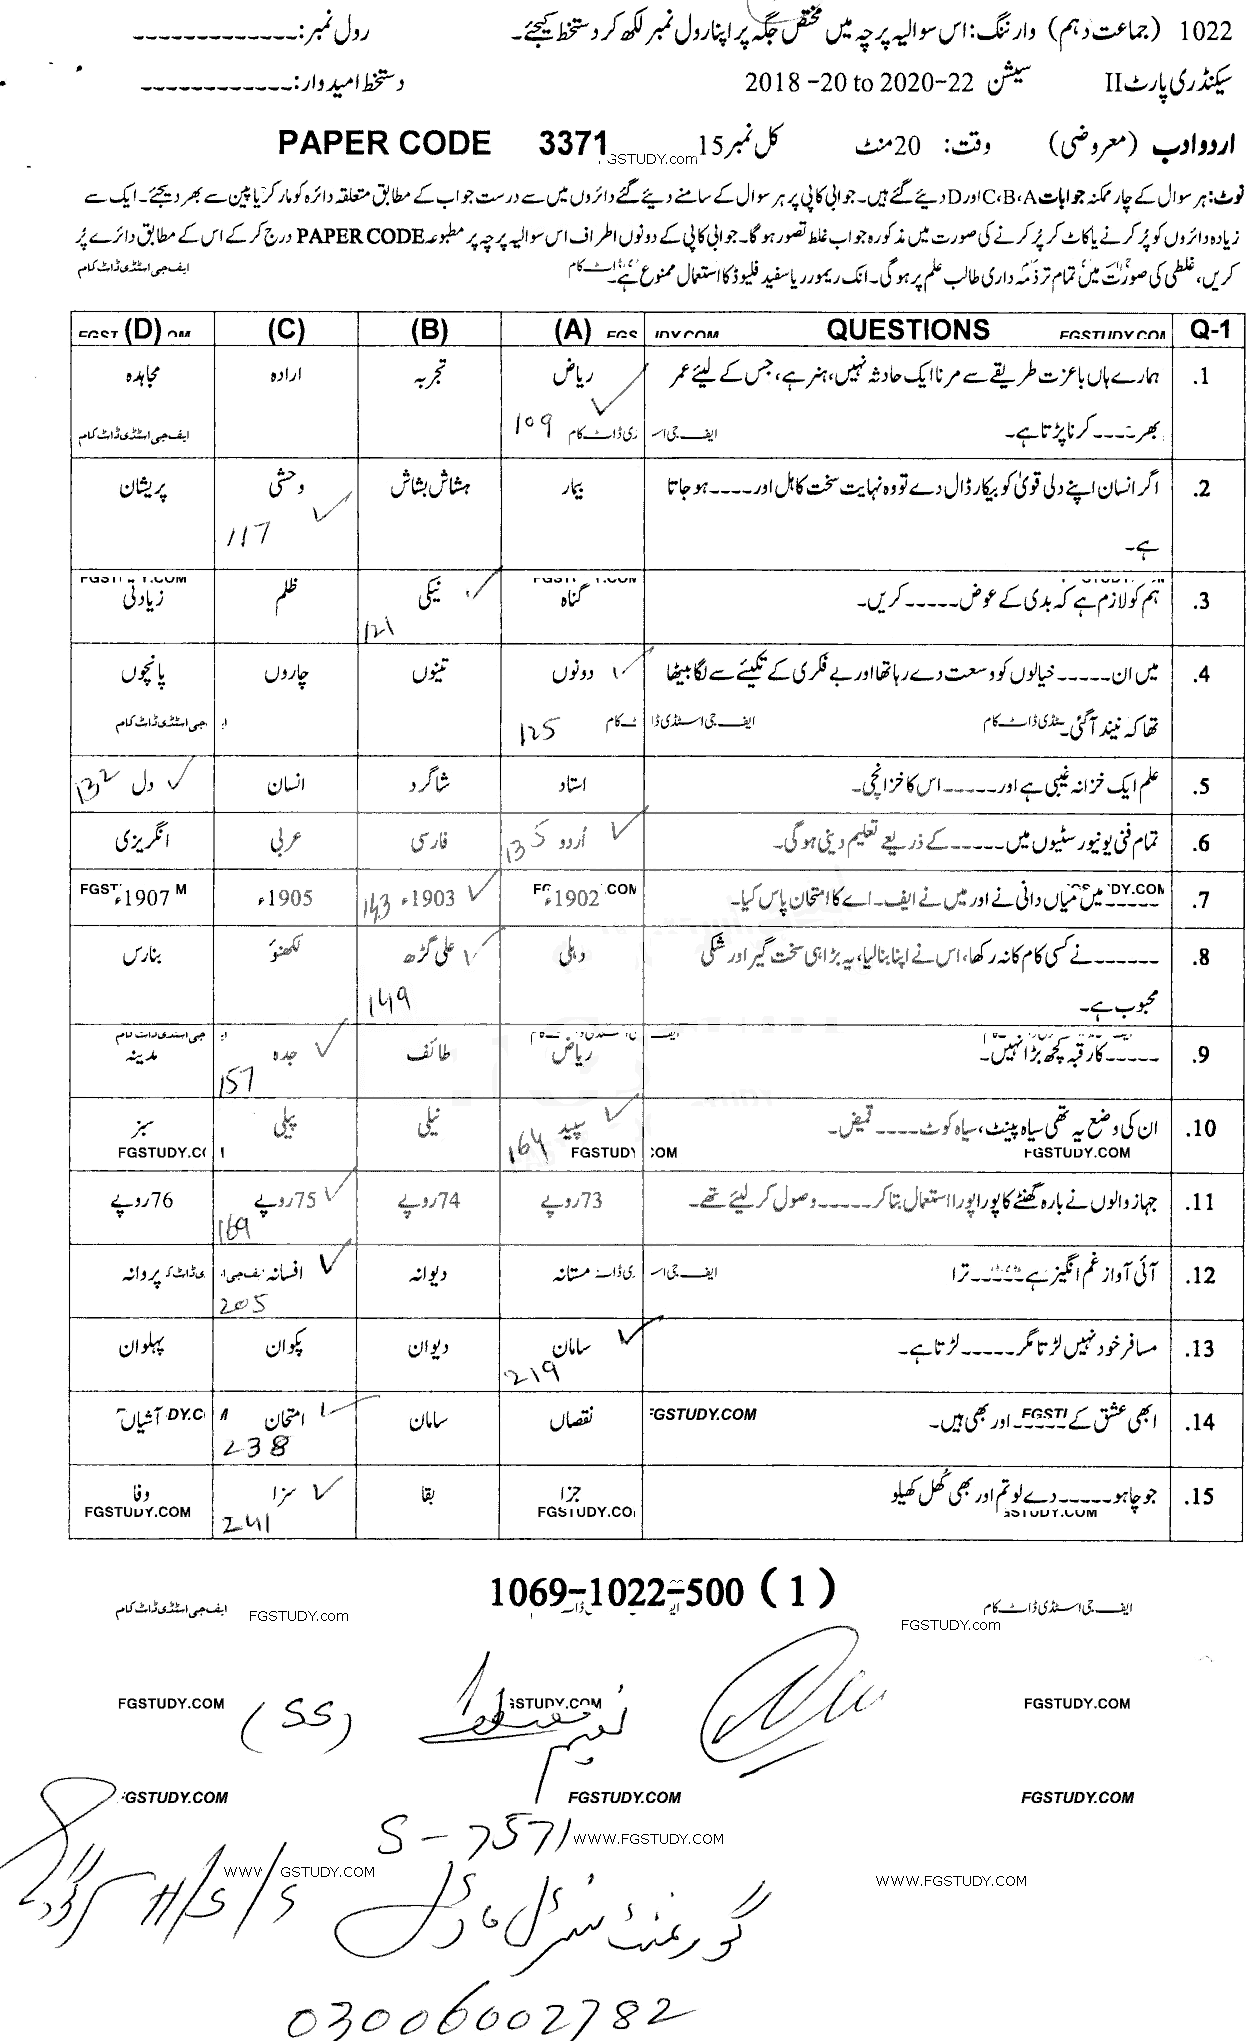 1022 (جماعت دہم) وارننگ: اس سوالیہ پرچہ میں مختص جگہ پر اپنا رول نمبر لکھ کر دستخط کیجئے۔ رول نمبر: -------------
سیکنڈری پارٹ II سیشن 2018 -20 to 2020-22 دستخط امیدوار: ------------
اردو ادب (معروضی) وقت: 20 منٹ کل نمبر 15 PAPER CODE 3371
FGSTUDY.com
نوٹ: ہر سوال کے چار ممکنہ جوابات C،B،A اور D دیئے گئے ہیں۔ جوابی کاپی پر ہر سوال کے سامنے دیئے گئے دائروں میں سے درست جواب کے مطابق متعلقہ دائرہ کو مارکر یا پین سے بھر دیجئے۔ ایک سے
زیادہ دائروں کو پُر کرنے یا کاٹ کر پُر کرنے کی صورت میں مذکورہ جواب غلط تصور ہوگا۔ جوابی کاپی کے دونوں اطراف اس سوالیہ پرچہ پر مطبوعہ PAPER CODE درج کر کے اس کے مطابق دائرے پُر
کریں، غلطی کی صورت میں تمام تر ذمہ داری طالب علم پر ہوگی۔ انک ریمور ریا سفید فلیوڈ کا استعمال ممنوع ہے۔ ڈاٹ کام ایف جی اسٹڈی ڈاٹ کام
Q-1 QUESTIONS (A) (B) (C) (D)
1. ہمارے ہاں باعزت طریقے سے مرنا ایک حادثہ نہیں، ہنر ہے، جس کے لیئے عمر ریاض تجربہ ارادہ مجاہدہ
بھر ---- کرنا پڑتا ہے۔ 109 ایف جی اسٹڈی ڈاٹ کام
2. اگر انسان اپنے دلی قویٰ کو بیکار ڈال دے تو وہ نہایت سخت کاہل اور ---- ہو جاتا بیمار ہشاش بشاش وحشی پریشان
ہے۔ 117
3. ہم کو لازم ہے کہ بدی کے عوض ----- کریں۔ گناہ نیکی ظلم زیادتی
121
4. میں ان ----- خیالوں کو وسعت دے رہا تھا اور بے فکری کے تکیئے سے لگا بیٹھا دونوں تینوں چاروں پانچوں
تھا کہ نیند آگئی۔ 125
5. علم ایک خزانہ غیبی ہے اور ----- اس کا خزانچی۔ استاد شاگرد انسان دل 132
6. تمام فنی یونیورسٹیوں میں ----- کے ذریعے تعلیم دینی ہوگی۔ اُردو 135 فارسی عربی انگریزی
7. ------ میں میاں دانی نے اور میں نے ایف۔ اے کا امتحان پاس کیا۔ 1902ء 1903ء 143 1905ء 1907ء
8. ------ نے کسی کام کا نہ رکھا، اس نے اپنا بنا لیا، یہ بڑا ہی سخت گیر اور شکی دہلی علی گڑھ لکھنؤ بنارس
محبوب ہے۔ 149
9. ----- کا رقبہ کچھ بڑا نہیں۔ ریاض طائف جدہ مدینہ
157
10. ان کی وضع یہ تھی سیاہ پینٹ، سیاہ کوٹ ---- قمیض۔ سپید نیلی پیلی سبز
FGSTUDY.COM 164
11. جہاز والوں نے بارہ گھنٹے کا پورا پورا استعمال بتا کر ----- وصول کر لیئے تھے۔ 73 روپے 74 روپے 75 روپے 76 روپے
169
12. آئی آواز غم انگیز ہے ----- ترا مستانہ دیوانہ افسانہ پروانہ
205
13. مسافر خود نہیں لڑتا مگر ----- لڑتا ہے۔ سامان دیوان پکوان پہلوان
219
14. ابھی عشق کے ----- اور بھی ہیں۔ نقصاں سامان امتحان آشیاں
FGSTUDY.COM 238
15. جو چاہو ----- دے لو تم اور بھی کُھل کھیلو جزا بقا سزا وفا
FGSTUDY.COM 241
1069-1022-500 (1)
ایف جی اسٹڈی ڈاٹ کام FGSTUDY.com FGSTUDY.com ایف جی اسٹڈی ڈاٹ کام
FGSTUDY.COM (SS) نعیم FGSTUDY.COM
FGSTUDY.COM FGSTUDY.COM FGSTUDY.COM
S-7571 WWW.FGSTUDY.COM
WWW.FGSTUDY.COM
H/S/S
گورنمنٹ سنٹرل ماڈل
03006002782